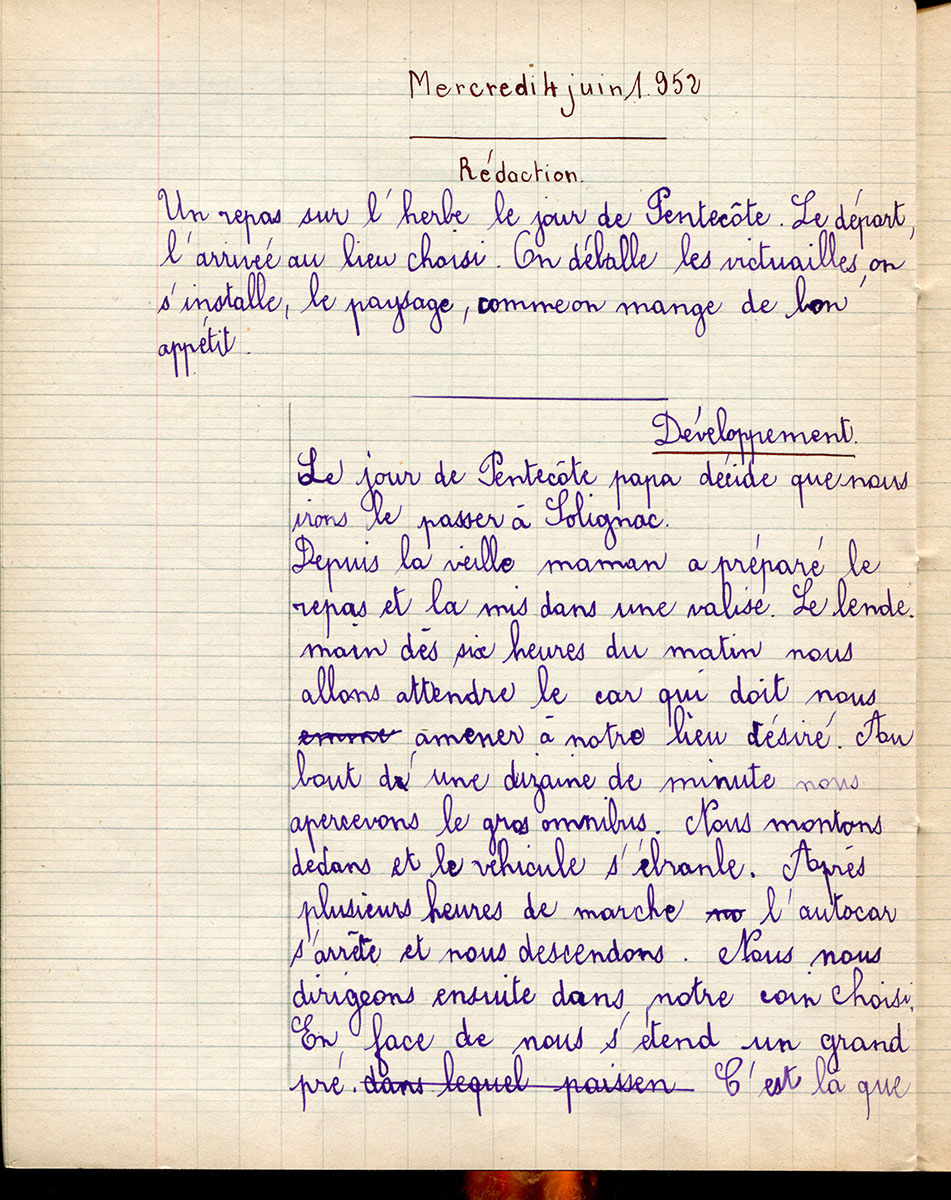 Mercredi 4 juin 1952
Rédaction.
Un repas sur l'herbe le jour de Pentecôte. Le départ,
l'arrivée au lieu choisi. On déballe les victuailles, on
s'installe, le paysage, comme on mange de bon
appétit.
Développement.
Le jour de Pentecôte papa décide que nous
irons le passer à Solignac.
Depuis la veille maman a préparé le
repas et la mis dans une valise. Le lende-
main dès six heures du matin nous
allons attendre le car qui doit nous
amener à notre lieu désiré. Au
bout d'une dizaine de minute nous
apercevons le gros omnibus. Nous montons
dedans et le véhicule s'ébranle. Après
plusieurs heures de marche no l'autocar
s'arrête et nous descendons. Nous nous
dirigeons ensuite dans notre coin choisi.
En face de nous s'étend un grand
pré. dans lequel paissen C'est là que